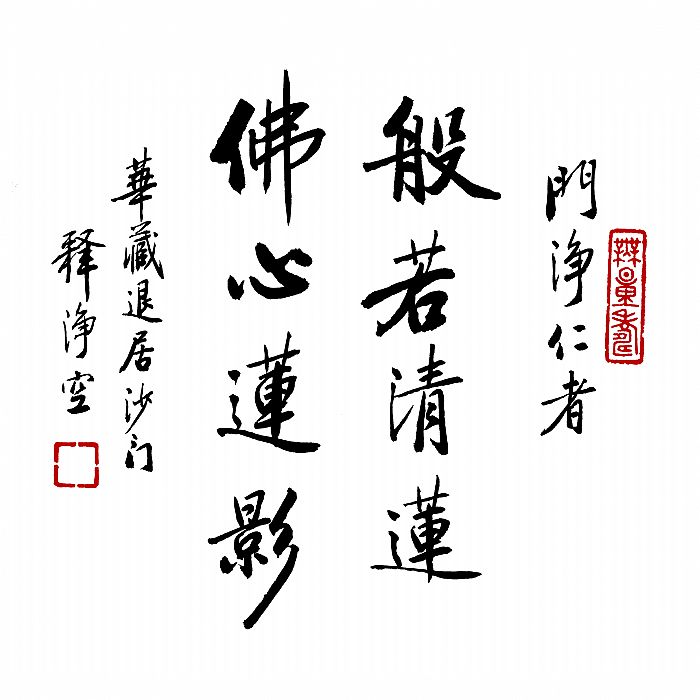 門淨仁者
般若清蓮
佛心蓮影
華藏退居沙门
釋淨空